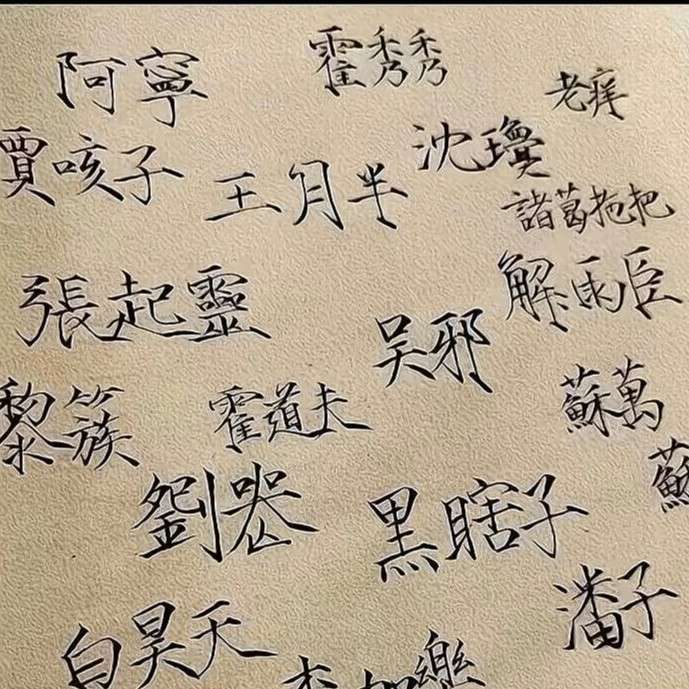 阿寧
霍秀秀
老痒
賈咳子
王月半
沈瓊
諸葛拖把
張起靈
解雨臣
吴邪
黎簇
霍道夫
蘇萬
蘇
劉喪
黑瞎子
潘子
白昊天
李加樂